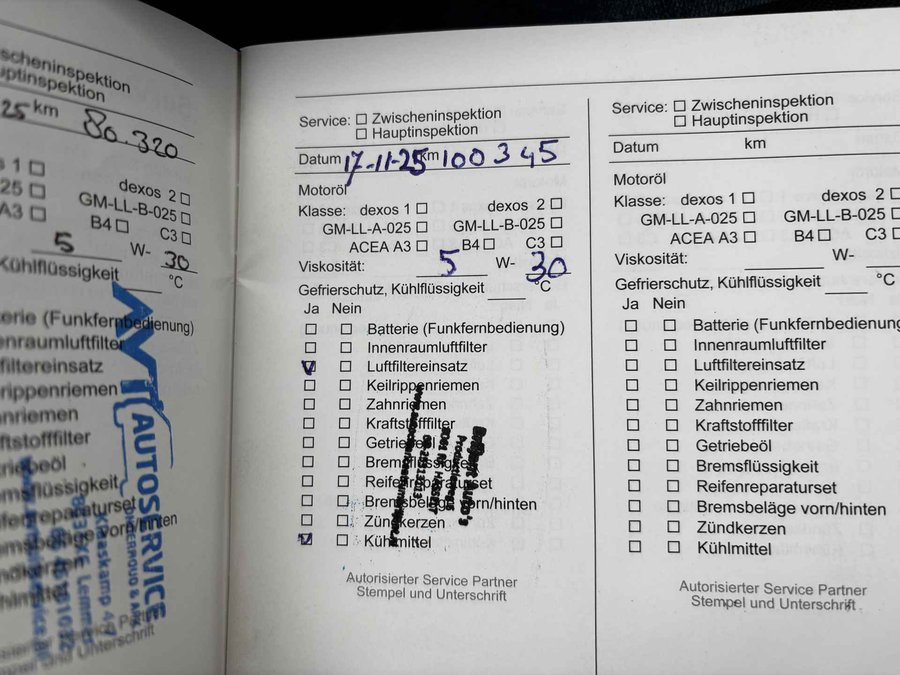 scheninspektion
uptinspektion
25 km 80.320
s 1 ☐
dexos 2 ☐
25 ☐ GM-LL-B-025 ☐
A3 ☐ B4 ☐ C3 ☐
5 W- 30
Kühlflüssigkeit °C
erie (Funkfernbedienung)
enraumluftfilter
filtereinsatz
rippenriemen
nriemen
ftstofffilter
riebeöl
msflüssigkeit
ifenreparaturset
emsbeläge vorn/hinten
ndkerzen
hlmittel
AUTOSERVICE
Lemmer
Stempel und Unterschrift
Service: ☐ Zwischeninspektion
☐ Hauptinspektion
Datum 17-11-25 km 100345
Motoröl
Klasse: dexos 1 ☐ dexos 2 ☐
GM-LL-A-025 ☐ GM-LL-B-025 ☐
ACEA A3 ☐ B4 ☐ C3 ☐
Viskosität: 5 W- 30
Gefrierschutz, Kühlflüssigkeit °C
Ja Nein
☐ ☐ Batterie (Funkfernbedienung)
☐ ☐ Innenraumluftfilter
☑ ☐ Luftfiltereinsatz
☐ ☐ Keilrippenriemen
☐ ☐ Zahnriemen
☐ ☐ Kraftstofffilter
☐ ☐ Getriebeöl
☐ ☐ Bremsflüssigkeit
☐ ☐ Reifenreparaturset
☐ ☐ Bremsbeläge vorn/hinten
☐ ☐ Zündkerzen
☑ ☐ Kühlmittel
Auto's
Autorisierter Service Partner
Stempel und Unterschrift
Service: ☐ Zwischeninspektion
☐ Hauptinspektion
Datum km
Motoröl
Klasse: dexos 1 ☐ dexos 2
GM-LL-A-025 ☐ GM-LL-B-025
ACEA A3 ☐ B4 ☐ C3
Viskosität: W-
Gefrierschutz, Kühlflüssigkeit °C
Ja Nein
☐ ☐ Batterie (Funkfernbedienung
☐ ☐ Innenraumluftfilter
☐ ☐ Luftfiltereinsatz
☐ ☐ Keilrippenriemen
☐ ☐ Zahnriemen
☐ ☐ Kraftstofffilter
☐ ☐ Getriebeöl
☐ ☐ Bremsflüssigkeit
☐ ☐ Reifenreparaturset
☐ ☐ Bremsbeläge vorn/hinten
☐ ☐ Zündkerzen
☐ ☐ Kühlmittel
Autorisierter Service Partner
Stempel und Unterschrift